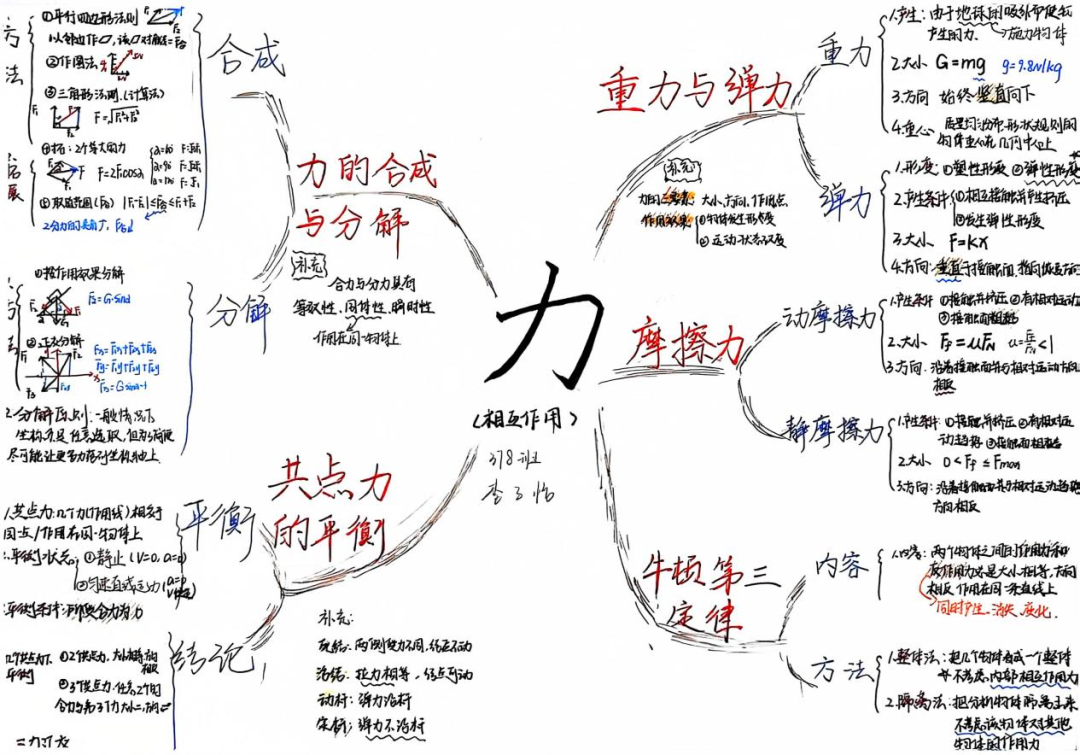 力
(相互作用)
378班
重力与弹力
重力
1.产生:由于地球的吸引而使物体
产生的力. 施力物体
2.大小 G=mg g=9.8N/kg
3.方向 始终竖直向下
4.重心 质量均匀分布,形状规则的
物体重心在几何中心上
补充
力的三要素:大小,方向,作用点
作用效果 ①物体发生形变
②运动状态改变
弹力
1.形变:①塑性形变 ②弹性形变
2.产生条件 ①相互接触并产生挤压
②发生弹性形变
3.大小 F=kx
4.方向:垂直于接触面,指向恢复方向
摩擦力
动摩擦力
1.产生条件 ①接触并挤压 ②有相对运动
③接触面粗糙
2.大小 Ff=μFN <1
3.方向:沿着接触面并与相对运动方向
相反
静摩擦力
1.产生条件:①接触并挤压 ②有相对运
动趋势 ③接触面粗糙
2.大小 0<Ff≤Fmax
3.方向:沿着接触面并与相对运动趋势
方向相反
牛顿第三
定律
内容
1.内容:两个物体之间的作用力和
反作用力总是大小相等,方向
相反,作用在同一条直线上
同时产生、消失、变化.
方法
1.整体法:把几个物体看成一个整体
不考虑内部相互作用力
2.隔离法:把分析物体隔离出来,
不考虑该物体对其他
物体的作用力
力的合成
与分解
合成
方法
①平行四边形法则
②作图法
③三角形法则.(计算法)
拓展
2个等大的力
F=2F₁cosα
②取值范围(F合) |F₁-F₂|≤F合≤F₁+F₂
补充
合力与分力具有
等效性,同体性,瞬时性
作用在同一物体上
分解
①按作用效果分解
F₂=G·sinα
②正交分解
2.分解原则:一般情况下
坐标系是任意选取,但为了简便
尽可能让更多力落到坐标轴上.
共点力
的平衡
平衡
1.共点力:几个力(作用线)相交于
同一点/作用在同一物体上
平衡状态:①静止(v=0,a=0)
②匀速直线运动(a=0
平衡条件:所受合力为0
结论
几个共点力下
平衡
①2个共点力,大小相等方向
相反
②3个共点力,任意2个的
合力与第3个力大小=,方向
补充:
死结:两侧绳力不同,结点不动
活结:拉力相等,结点可动
动杆:弹力沿杆
定杆:弹力不沿杆